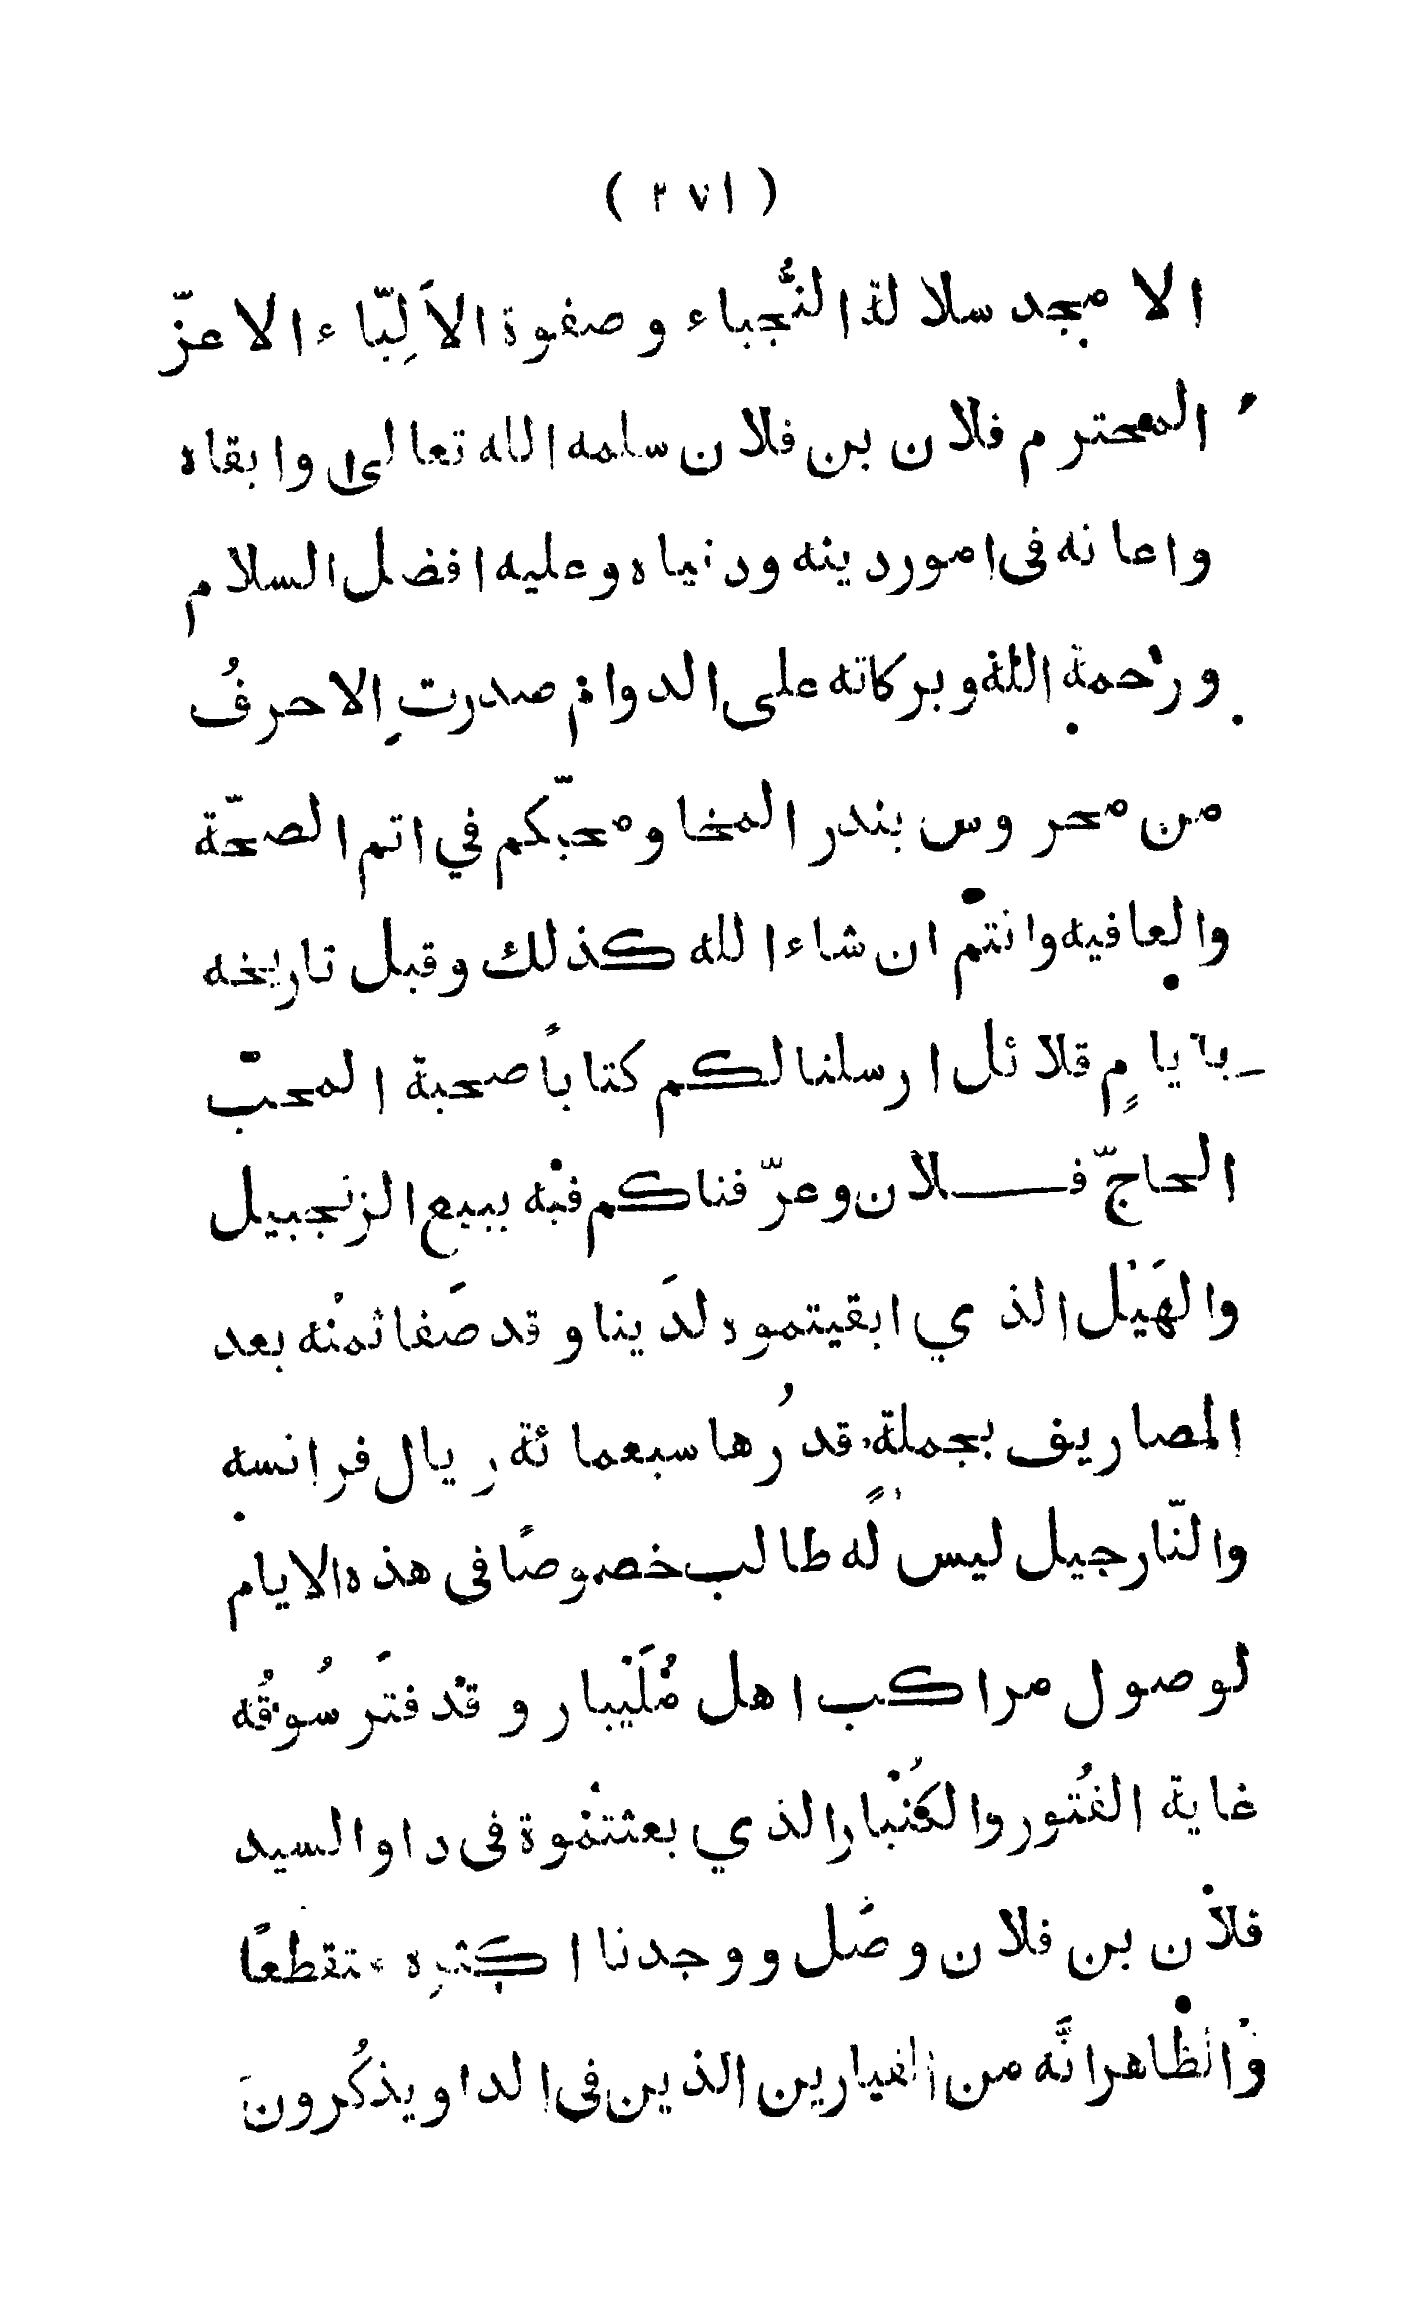 ( ٢٧١ )
الامجد سلالة النُّجباء وصفوة الاَلِبّاء الاعزّ
المحترم فلان بن فلان سلمه الله تعالى وابقاه
واعانه فى امور دينه ودنياه وعليه افضل السلام
ورحمة الله وبركاته على الدوام صدرتِ الاحرفُ
من محروس بندر المخا ومحبّكم في اتم الصحّة
والعافيه وانتم ان شاء الله كذلك وقبل تاريخه
بايامٍ قلائل ارسلنا لكم كتاباً صحبة المحب
الحاجّ فـــلان وعرّفناكم فيه ببيع الزنجبيل
والهَيْل الذي ابقيتموه لدَينا وقد صَفا ثمنه بعد
المصاريف بجملة قدرُها سبعمائة ريال فرانسه
والنّارجيل ليس له طالب خصوصًا فى هذه الايام
لوصول مراكب اهل مُلَيْبار وقد فتَر سُوقُه
غاية الفُتور والكُنْبار الذي بعثتموة فى داو السيد
فلان بن فلان وصَل ووجدنا اكثرِه متقطعًا
والظاهر انَّه من الفيارين الذين فى الداو يذكُرونَ